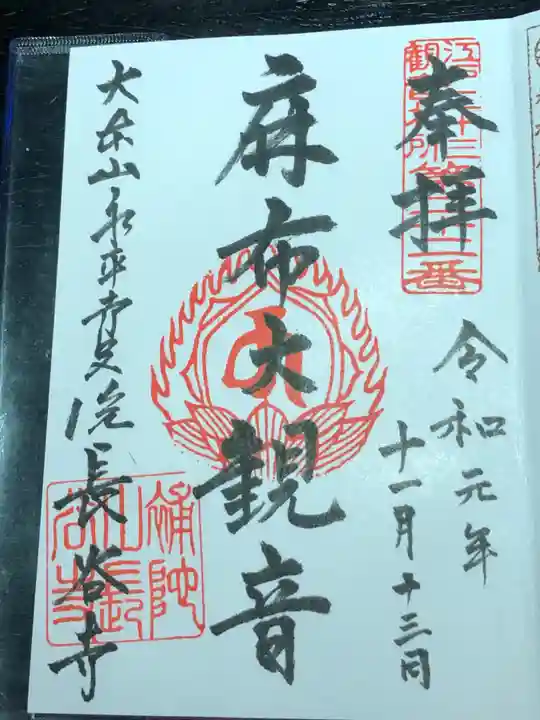 奉拝
江戸三十三
観音札所第廿二番
令和元年
十一月十三日
麻布大観音
大本山永平寺別院
長谷寺
補陀
山長
谷寺